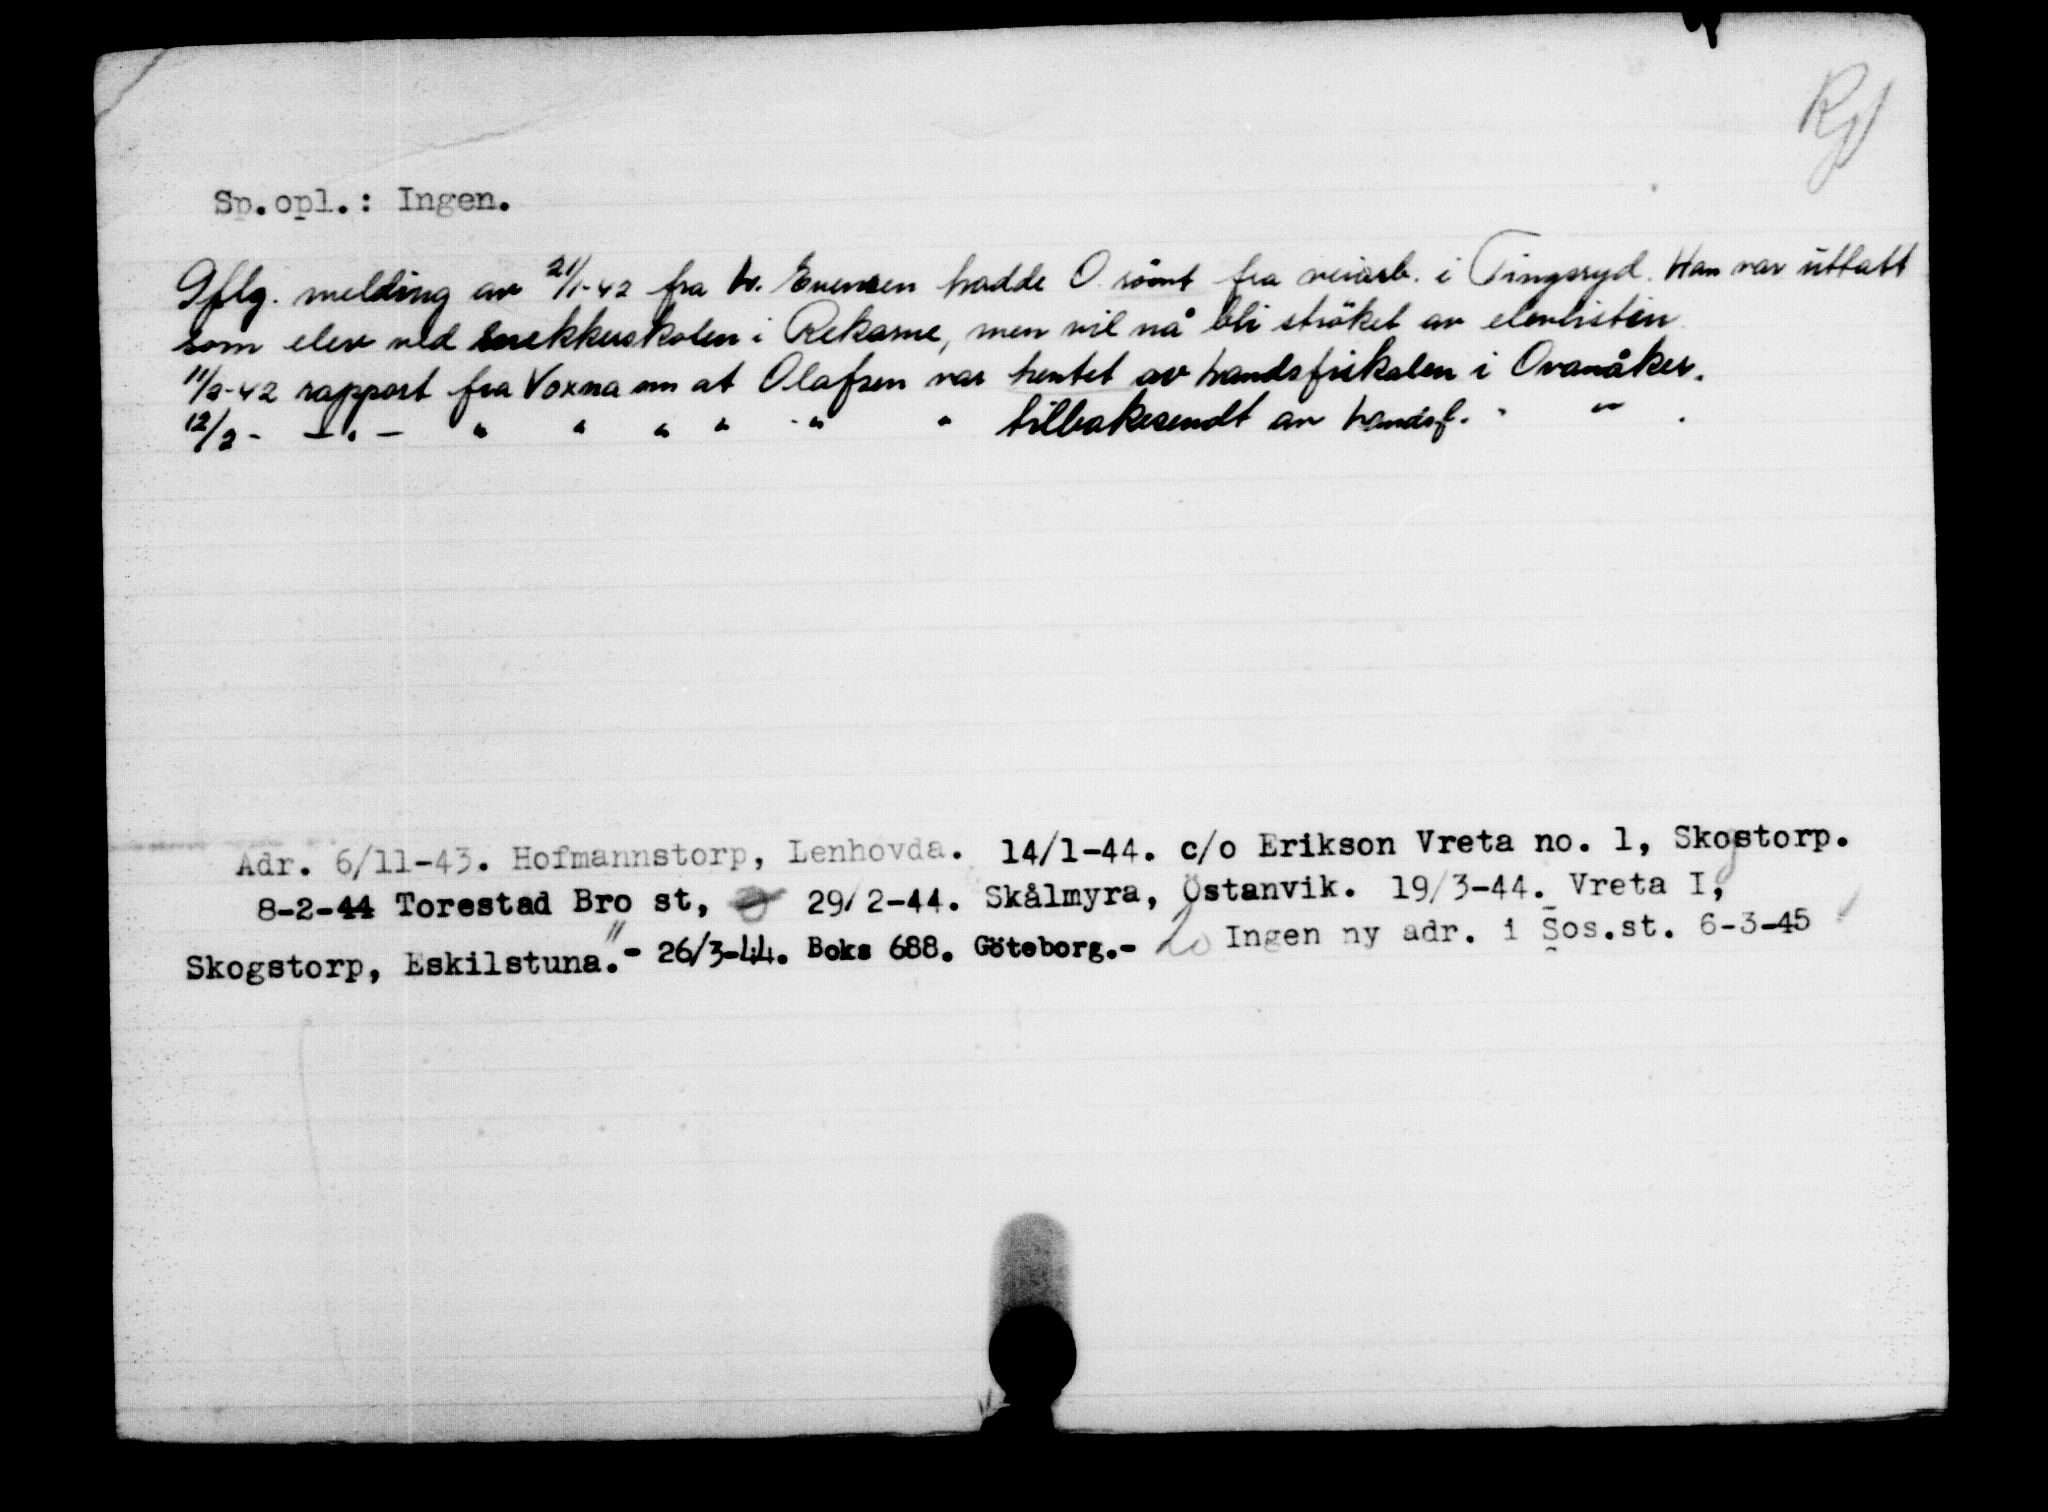 Sp.opl.: Ingen.
Iflg. melding av 21/1-42 fra L. Evensen hadde O. römt fra veiarb. i Tingsryd. Han var uttatt
som elev ved snekkerskolen i Rekarne, men vil nå bli ströket av elevlisten
11/2-42 rapport fra Voxna om at Olafsen var hentet av landsfiskalen i Ovanåker.
12/2- — " — " " " " " " tilbakesendt av landsf. " " .
Adr. 6/11-43. Hofmannstorp, Lenhovda. 14/1-44. c/o Erikson Vreta no. 1, Skogstorp.
8-2-44 Torestad Bro st, 29/2-44. Skålmyra, Östanvik. 19/3-44. Vreta I,
Skogstorp, Eskilstuna."- 26/3-44. Boks 688. Göteborg.- Ingen ny adr. i Sos.st. 6-3-45